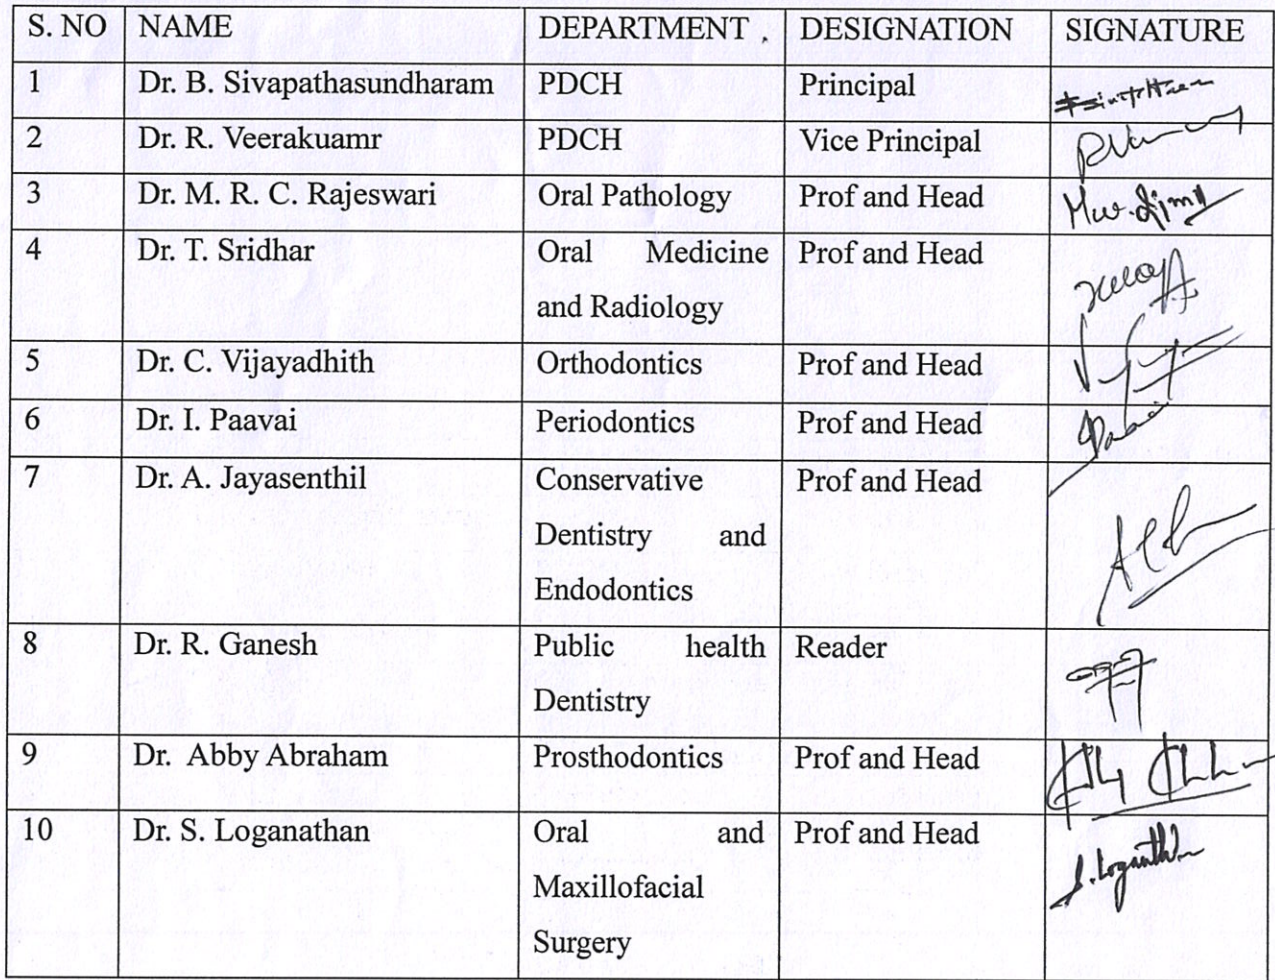 S. NO NAME DEPARTMENT . DESIGNATION SIGNATURE
1 Dr. B. Sivapathasundharam PDCH Principal
2 Dr. R. Veerakuamr PDCH Vice Principal
3 Dr. M. R. C. Rajeswari Oral Pathology Prof and Head
4 Dr. T. Sridhar Oral Medicine Prof and Head
and Radiology
5 Dr. C. Vijayadhith Orthodontics Prof and Head
6 Dr. I. Paavai Periodontics Prof and Head
7 Dr. A. Jayasenthil Conservative Prof and Head
Dentistry and
Endodontics
8 Dr. R. Ganesh Public health Reader
Dentistry
9 Dr. Abby Abraham Prosthodontics Prof and Head
10 Dr. S. Loganathan Oral and Prof and Head
Maxillofacial
Surgery